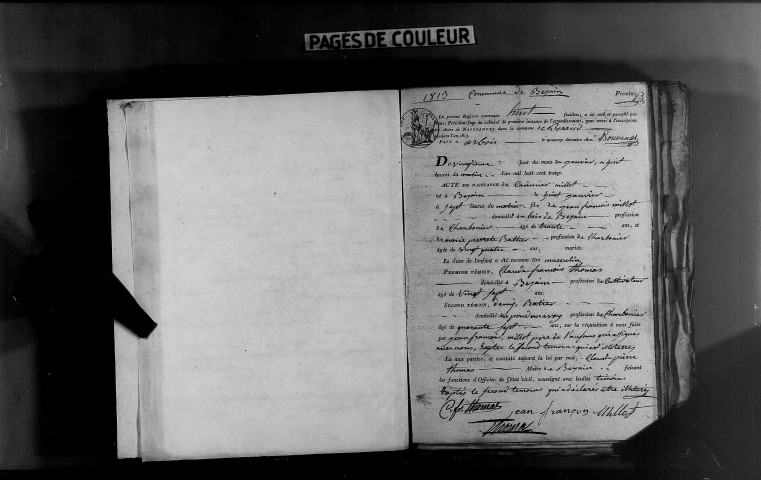 PAGES DE COULEUR
1813 Commune de Besain Premier
Le présent Registre contenant huit feuillets, a été coté et paraphé par
Nous, Président-Juge du tribunal de première instance de l'arrondissement, pour servir à l'inscription
des Actes de NAISSANCES, dans la commune de Besain
pendant l'an 1813.
FAIT à arbois le quatorze décembre 1812.
Du vingtieme jour du mois de janvier, a huit
heures du matin l'an mil huit cent treize.
ACTE DE NAISSANCE de millot
né à Besain le huit janvier
à sept heures du matin fils de jean francois millot
domicilié au bois de Besain profession
de Charbonier âgé de trente ans, et
de marie pierrete Battier profession de Charbonier
âgée de vingt quatre ans, mariés.
Le sexe de l'enfant a été reconnu être masculin
PREMIER TÉMOIN, Claude francois thomas
domicilié à Besain profession de Cultivateur
âgé de vingt sept ans.
SECOND TÉMOIN, denis Batier
domicilié profession de Charbonier
âgé de quarante sept ans, sur la réquisition à nous faite
par jean françois millot pere de l'enfant qui a signé
avec nous, Exptez le second temoin
Lu aux parties, et constaté suivant la loi par moi, Claude pierre
thomas Maire de Besain faisant
les fonctions d'Officier de l'état civil, soussigné avec lesdits témoins
Exptez le second temoin qui a déclarés etre
C. f. thomas jean françois Millot
Thomas